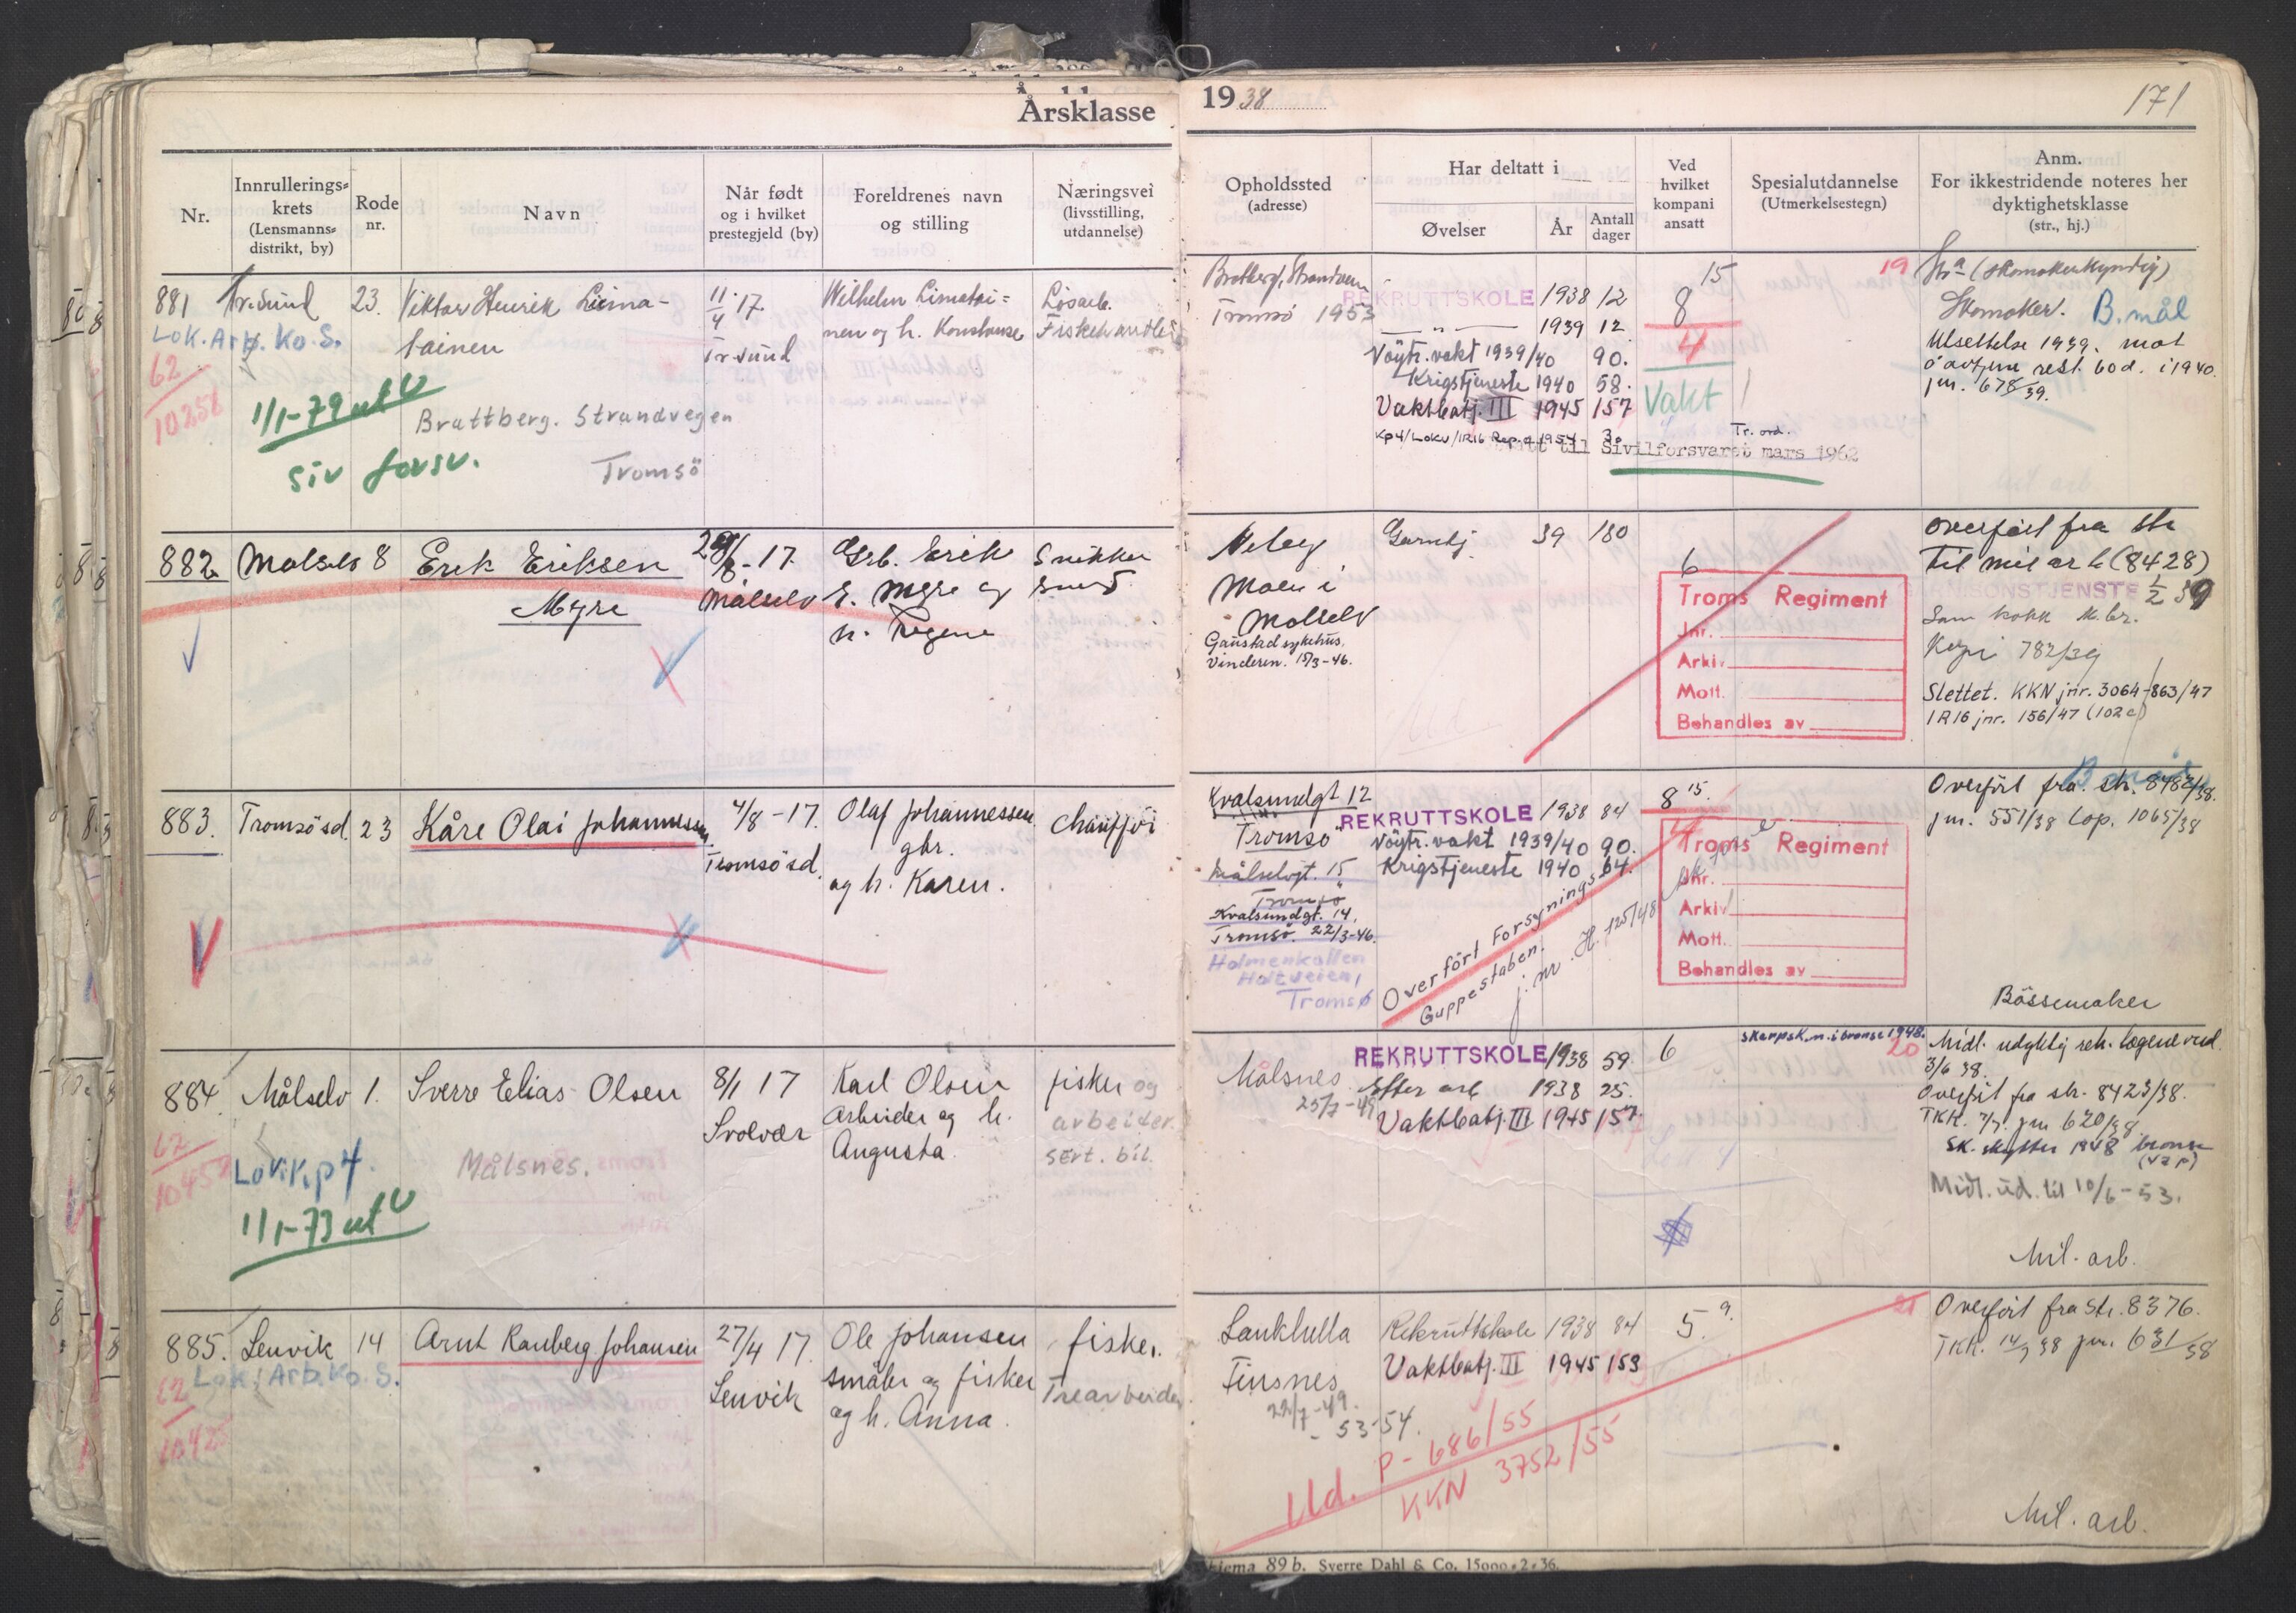 Årsklasse
1938
171
Nr.
Innrullerings-
krets
(Lensmanns-
distrikt, by)
Rode
nr.
Navn
Når født
og i hvilket
prestegjeld (by)
Foreldrenes navn
og stilling
Næringsvei
(livsstilling,
utdannelse)
Opholdssted
(adresse)
Har deltatt i
Øvelser
År
Antall
dager
Ved
hvilket
kompani
ansatt
Spesialutdannelse
(Utmerkelsestegn)
Anm.
For ikkestridende noteres her
dyktighetsklasse
(str., hj.)
881
Tr.sund
23.
Viktor Henrik Lima-
tainen
11/4 17.
Tr.sund
Wilhelm Limatai=
nen og h. Konstanse
Løsarb.
Fiskehandler
Lok. Arb. Ko. S.
62
10258
1/1-79 ut
siv forsv.
Brattberg. Strandvegen
Tromsö
Brattberg, Strandveien
Tromsö 1953
REKRUTTSKOLE 1938 12
— " — 1939 12
Nöytr. vakt 1939/40 90.
Krigstjeneste 1940 58.
Vaktbatj. III 1945 157
Kp4/Lokv/IR16 Rep.ø 1954 30
Tr. ord.
til Sivilforsvaret mars 1962
15
8
4
Vakt
19
(skomakerkyndig)
Skomaker. B. mål
Utsettelse 1939, mot
å avtjene rest. 60 d. i 1940.
jnr. 678/39.
882
Målselv
8
Erik Eriksen
Myre
-17.
Målselv
Grb. Erik
E. Myre og
h. Regine
Snikker
Moen i
Målselv
Gaustad sykehus.
Vinderen. 15/3-46.
Garntj.
39
180
6
Troms Regiment
Jnr.
Arkiv
Mott.
Behandles av
Overført fra str
til mil arb (8428)
GARNISONSTJENESTE 1/2 39
Som kokk
782/39
Slettet. KKN jnr. 3064-863/47
IR16 jnr. 156/47 (102c)
883.
Tromsösd.
23
Kåre Olai Johannessen
4/8-17.
Tromsösd.
Olaf Johannessen
gbr.
og h. Karen.
Chaufför
Kvalsundgt 12
Tromsö
Målselvgt. 15
Tromsö
Kvalsundgt. 14.
Tromsö. 22/3-46.
Holmenkollen
Holtveien,
Tromsø
REKRUTTSKOLE 1938 84
Nöytr. vakt 1939/40 90.
Krigstjeneste 1940 64.
Overfört Forsynings-
Guppestaben.
j. nr. H. 125/48
8 15.
Troms Regiment
Jnr.
Arkiv
Mott.
Behandles av
Overfört fra str. 8482/38.
jnr. 551/38 Lop. 1065/38
Bössemaker
884.
Målselv
1.
Sverre Elias Olsen
8/1 17
Svolvær
Karl Olsen
Arbeider og h.
Augusta.
fisker og
arbeider.
Sert. bil.
62
Lok.Kp 4.
1/1-73 ut
Målsnes.
Målsnes.
25/7-49
REKRUTTSKOLE 1938 59.
1938 25.
Vaktbatj. III 1945 157.
6
Skarpsk. m. i bronse 1948.
20
Midl. udyktig
3/6 38.
Overført fra str. 8423/38.
jnr 620/38
Sk. skytter 1948 bronse
Midl. ud. til 10/6-53.
Mil. arb.
885.
Lenvik
14
Arnt Ranberg Johansen
27/4 17
Lenvik
Ole Johansen
småbr og fisker
og h. Anna.
fisker.
Trearbeider
Lok. Arb. Ko. S.
62
Lankhella
Finsnes
22/7-49.
- 53-54.
Rekruttskole 1938 84
Vaktbatj. III 1945 153
5. 9
21
Ud. P- 686/55
KKN 3752/55
Overfört fra str. 8376.
jnr. 631/38
Mil. arb.
89 b. Sverre Dahl & Co. 15000-2-36.